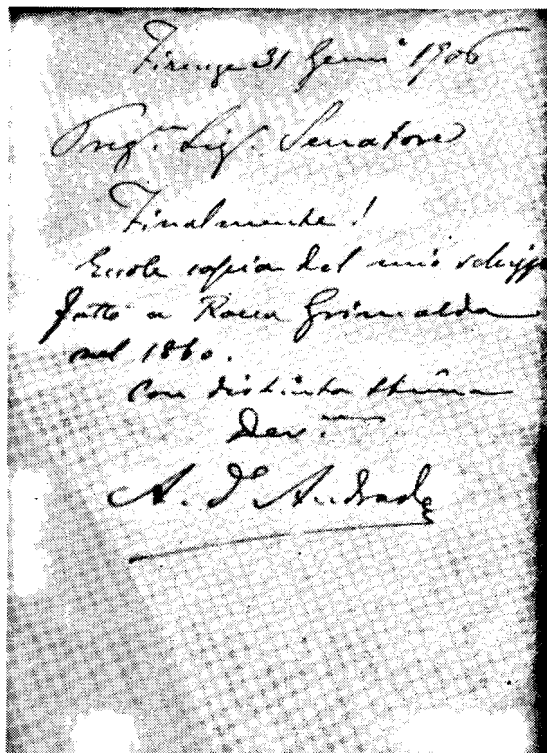 Firenze 31 Genn° 1906
Preg.mo Sig. Senatore
Finalmente!
Eccole copia del mio schizzo
fatto a Rocca Grimalda
nel 1860.
con distinta stima
Dev.mo
A. D'Andrade